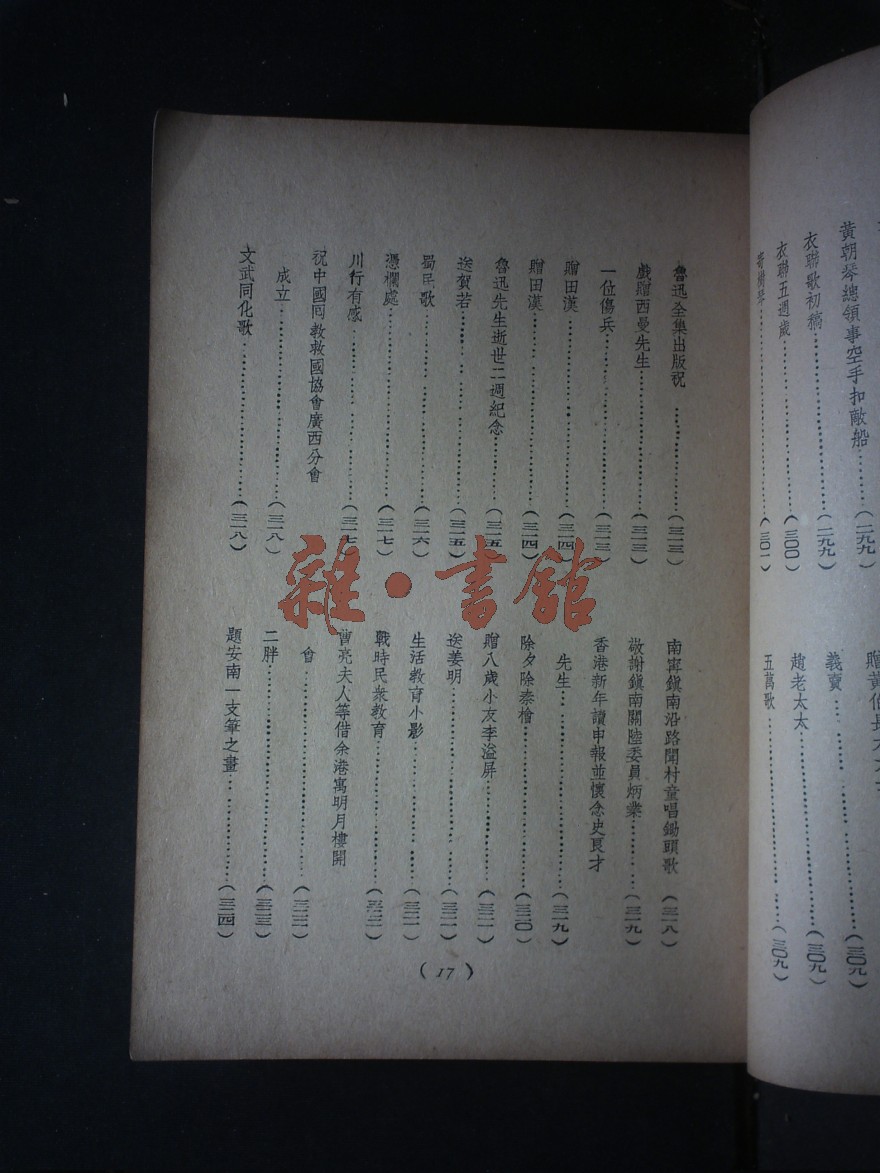 黃朝琴總領事空手扣敵船……(二九九)
衣聯歌初稿……(二九九)
衣聯五週歲……(三〇〇)
樹琴……(三〇一)
贈黃伯長
義賣……(三〇九)
趙老太太……(三〇九)
五萬歌……(三〇九)
魯迅全集出版祝……(三一三)
戲贈西曼先生……(三一三)
一位傷兵……(三一三)
贈田漢……(三一四)
贈田漢……(三一四)
魯迅先生逝世二週紀念……(三一五)
送賀若……(三一五)
蜀民歌……(三一六)
憑欄處……(三一七)
川行有感……(三一七)
祝中國回教救國協會廣西分會
成立……(三一八)
文武同化歌……(三一八)
南寧鎮南沿路聞村童唱鋤頭歌(三一八)
敬謝鎮南關陸委員炳業……(三一九)
香港新年讀申報並懷念史良才
先生……(三一九)
除夕除秦檜……(三二〇)
贈八歲小友李溢屏……(三二一)
送姜明……(三二一)
生活教育小影……(三二一)
戰時民衆教育……(三二二)
曹亮夫人等借余港寓明月樓開
會……(三二二)
二胖……(三二三)
題安南一支筆之畫……(三二四)
(17)
雜·書館